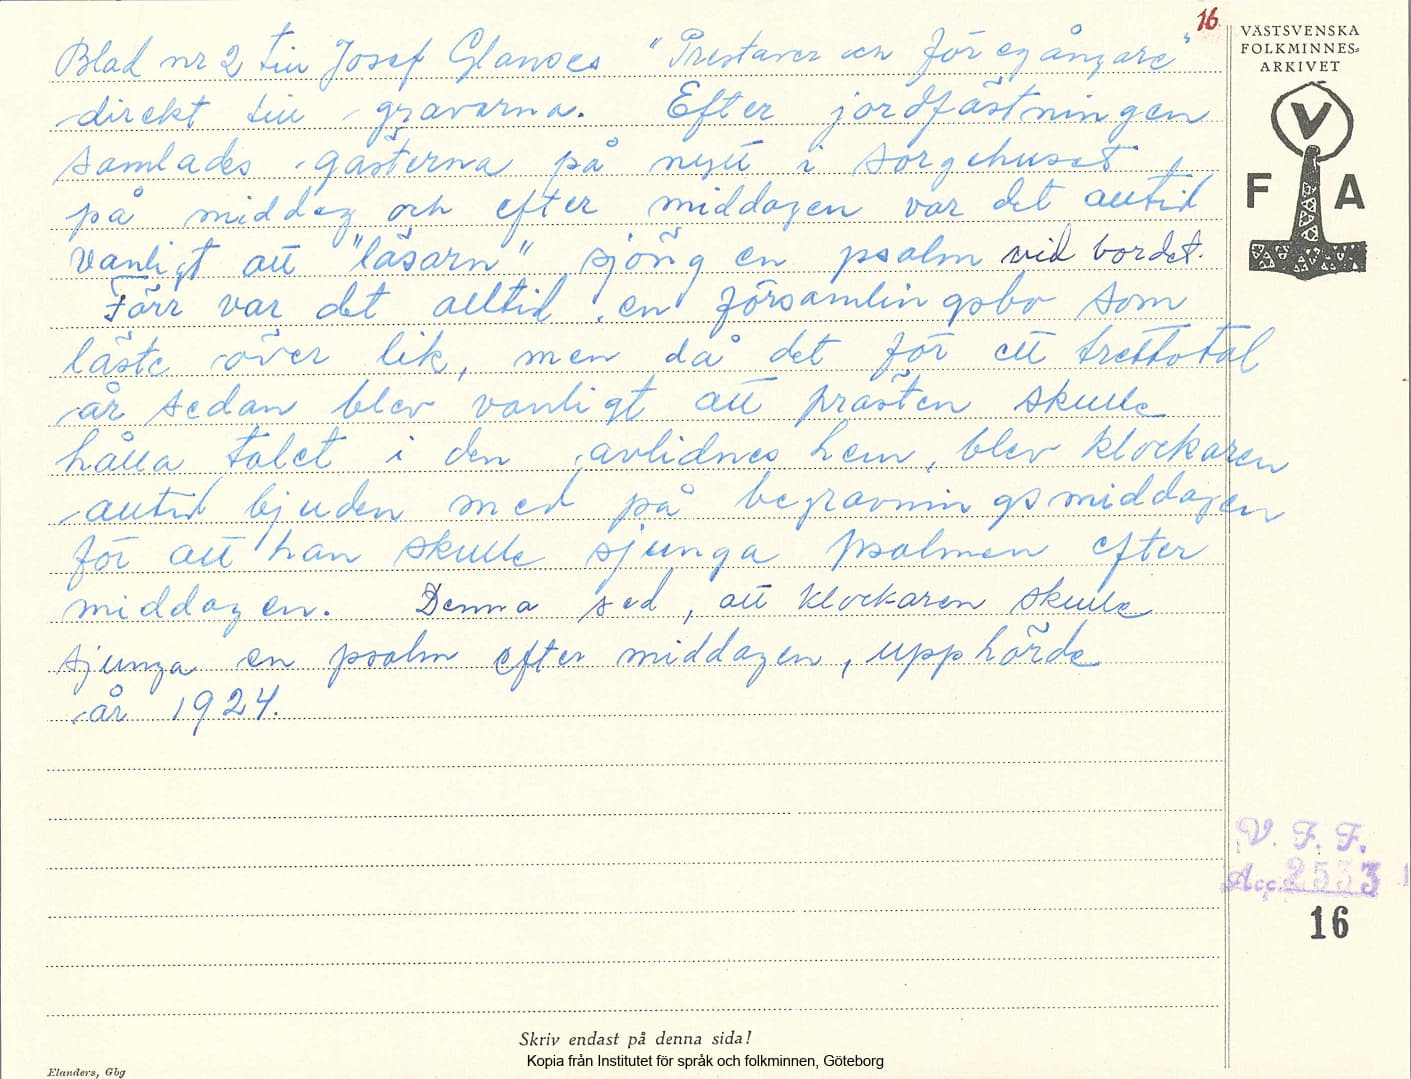 16
Blad nr 2 till Josef Glanses "Prestaver och föregångare"
direkt till gravarna. Efter jordfästningen
samlades gästerna på nytt i sorgehuset
på middag och efter middagen var det alltid
vanligt att "läsarn" sjöng en psalm vid bordet.
Förr var det alltid en församlingsbo som
läste över lik, men då det för ett trettiotal
år sedan blev vanligt att prästen skulle
hålla talet i den avlidnes hem, blev klockaren
alltid bjuden med på begravningsmiddagen
för att han skulle sjunga psalmen efter
middagen. Denna sed, att klockaren skulle
sjunga en psalm efter middagen, upphörde
år 1924.
VÄSTSVENSKA
FOLKMINNES-
ARKIVET
V
F A
V. F. F.
Acc. 2533
16
Skriv endast på denna sida!
Kopia från Institutet för språk och folkminnen, Göteborg
Elanders, Gbg